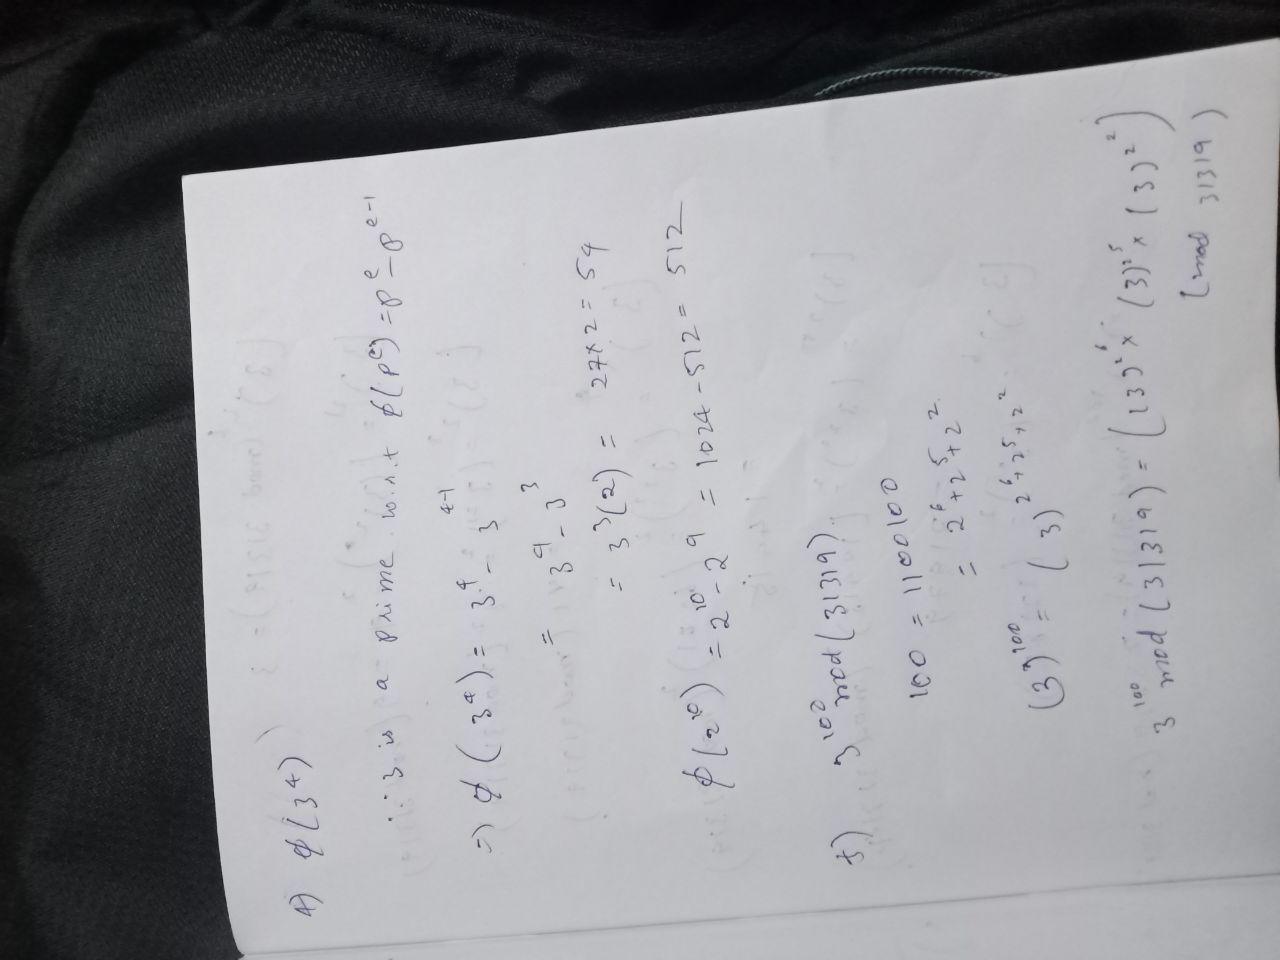 4) φ(3^4)
∵ 3 is a prime w.r.t φ(p^e) = p^e - p^{e-1}
=) φ(3^4) = 3^4 - 3^{4-1}
= 3^4 - 3^3
= 3^3(2) = 27×2 = 54
φ(2^{10}) = 2^{10} - 2^9 = 1024 - 512 = 512
5) 3^{100} mod (31319)
100 = 1100100
= 2^6 + 2^5 + 2^2
(3)^{100} = (3)^{2^6+2^5+2^2}
3^{100} mod (31319) = ((3)^{2^6} × (3)^{2^5} × (3)^{2^2})
(mod 31319)